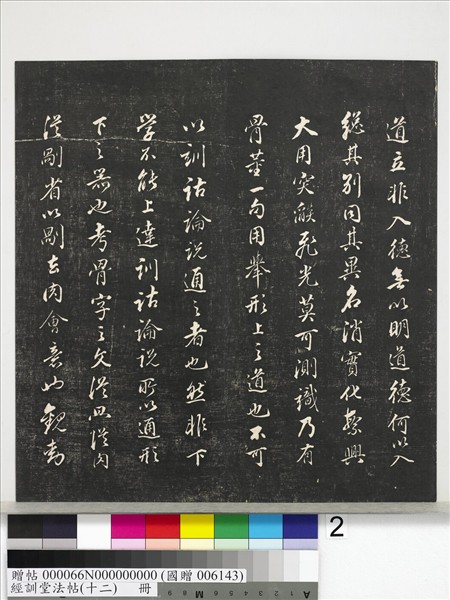 道立非入德無以明道德何以入
總其別同其異名消實化興
大用突光莫可測識乃有
骨董一句用舉形上之道也不可
以訓詁論說通之者也然非下
學不能上達訓詁論說所以通形
下之器也考骨字之文從冎從肉
從剮省以剮去肉會意此觀
2
贈帖 000066N000000000 (國贈 006143)
經訓堂法帖(十二) 冊